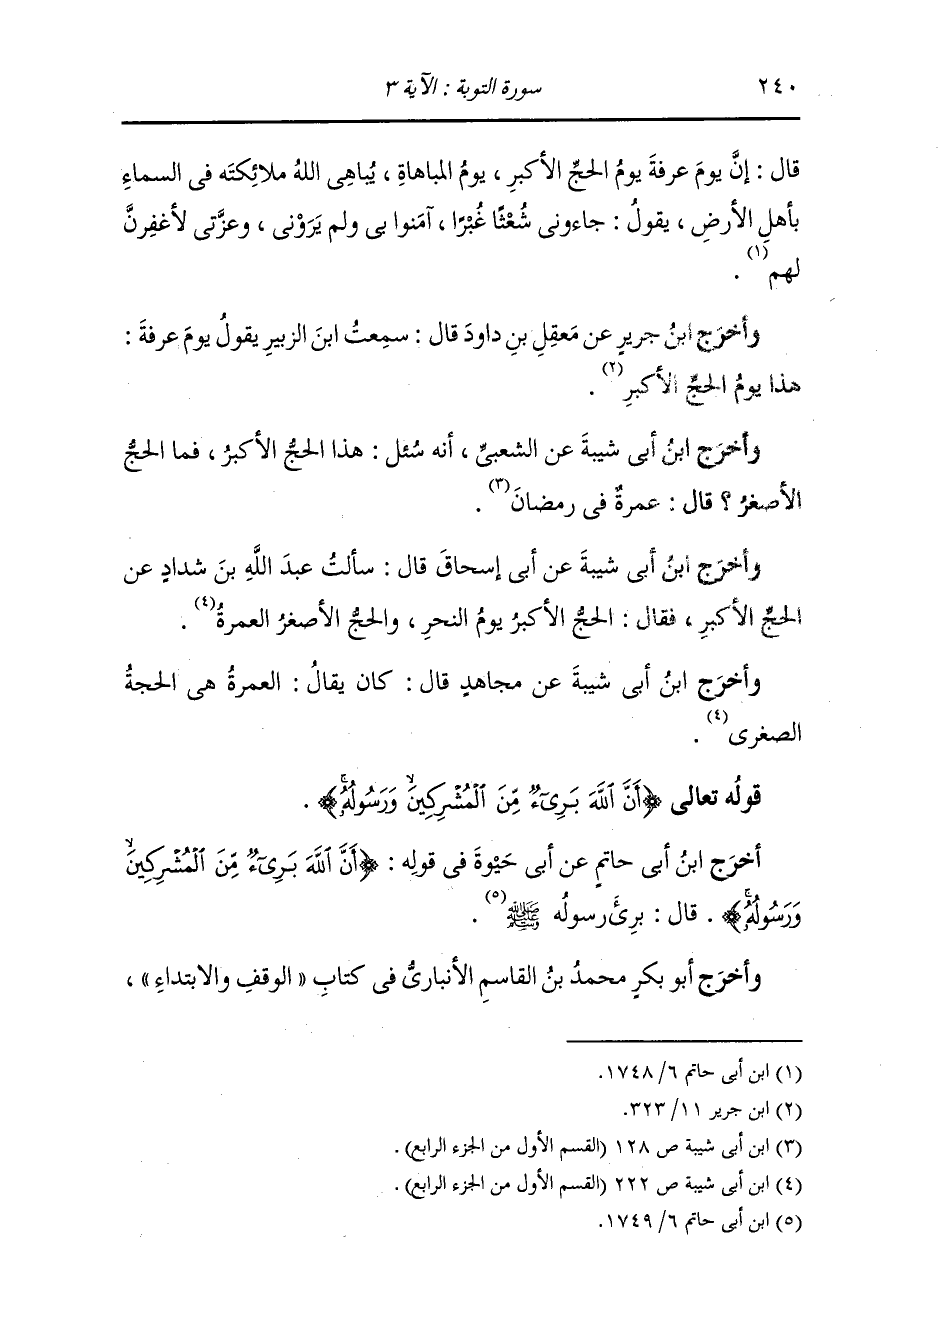 ٢٤٠ سورة التوبة : الآية ٣
قال : إنَّ يومَ عرفةَ يومُ الحجِّ الأكبرِ ، يومُ المباهاةِ ، يُباهِى اللهُ ملائِكتَه فى السماءِ
بأهلِ الأرضِ ، يقولُ : جاءونى شُعْثًا غُبْرًا ، آمَنوا بى ولم يَرَوْنى ، وعزَّتى لأغفِرنَّ
لهم (١) .
وأخرَج ابنُ جريرٍ عن مَعقِلِ بنِ داودَ قال : سمِعتُ ابنَ الزبيرِ يقولُ يومَ عرفةَ :
هذا يومُ الحجِّ الأكبرِ (٢) .
وأخرَج ابنُ أبى شيبةَ عن الشعبىِّ ، أنه سُئل : هذا الحجُّ الأكبرُ ، فما الحجُّ
الأصغرُ ؟ قال : عمرةٌ فى رمضانَ (٣) .
وأخرَج ابنُ أبى شيبةَ عن أبى إسحاقَ قال : سألتُ عبدَ اللَّهِ بنَ شدادٍ عن
الحجِّ الأكبرِ ، فقال : الحجُّ الأكبرُ يومُ النحرِ ، والحجُّ الأصغرُ العمرةُ (٤) .
وأخرَج ابنُ أبى شيبةَ عن مجاهدٍ قال : كان يقالُ : العمرةُ هى الحجةُ
الصغرى (٤) .
قولُه تعالى ﴿أَنَّ ٱللَّهَ بَرِىٓءٌ مِّنَ ٱلْمُشْرِكِينَۙ وَرَسُولُهُۥۚ﴾ .
أخرَج ابنُ أبى حاتمٍ عن أبى حَيْوةَ فى قولِه : ﴿أَنَّ ٱللَّهَ بَرِىٓءٌ مِّنَ ٱلْمُشْرِكِينَۙ
وَرَسُولُهُۥۚ﴾ . قال : برِئَ رسولُه ﷺ (٥) .
وأخرَج أبو بكرٍ محمدُ بنُ القاسمِ الأنبارىُّ فى كتابِ « الوقفِ والابتداءِ » ،
(١) ابن أبى حاتم ٦/ ١٧٤٨.
(٢) ابن جرير ١١/ ٣٢٣.
(٣) ابن أبى شيبة ص ١٢٨ (القسم الأول من الجزء الرابع).
(٤) ابن أبى شيبة ص ٢٢٢ (القسم الأول من الجزء الرابع).
(٥) ابن أبى حاتم ٦/ ١٧٤٩.